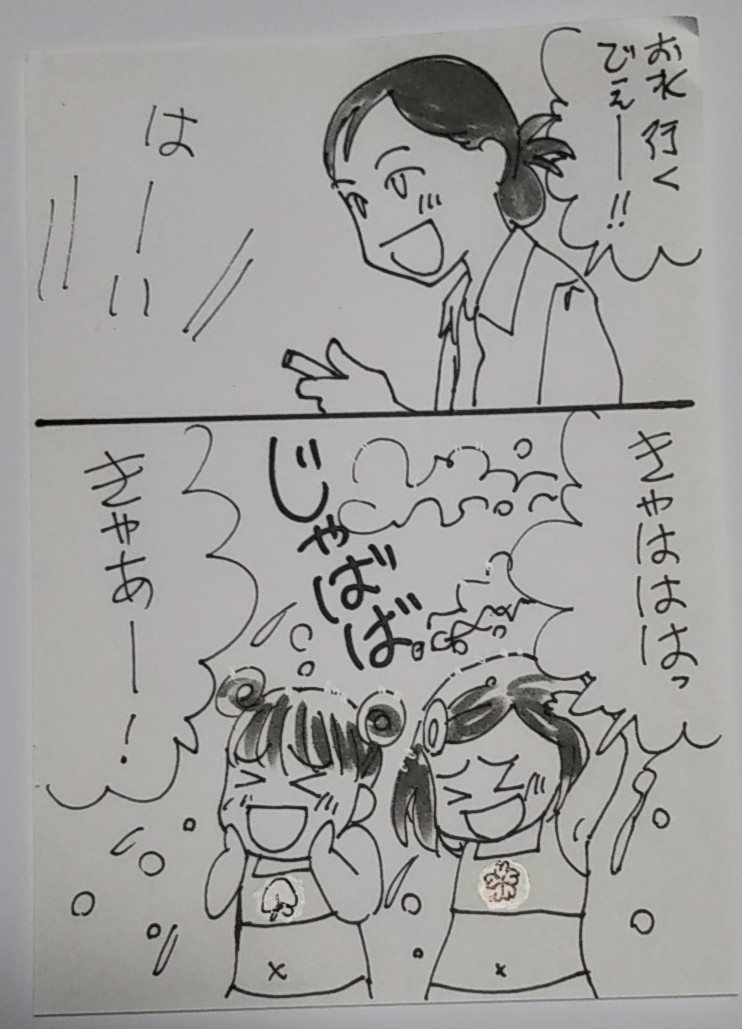 お水 行く
でぇー!!
はーい
きゃはははっ
じゃばばば
きゃあー!